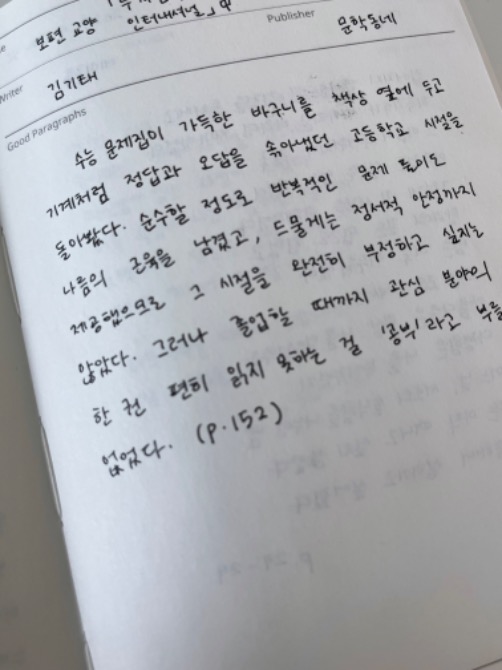 보편 교양
인터내셔널」中
Publisher
문학동네
Writer
김기태
Good Paragraphs
수능 문제집이 가득한 바구니를 책상 옆에 두고
기계처럼 정답과 오답을 솎아냈던 고등학교 시절을
돌아봤다. 순수할 정도로 반복적인 문제 풀이도
나름의 근육을 남겼고, 드물게는 정서적 안정까지
제공했으므로 그 시절을 완전히 부정하고 싶지는
않았다. 그러나 졸업할 때까지 관심 분야의
한 권 편히 읽지 못하는 걸 '공부'라고 부를
없었다. (p.152)